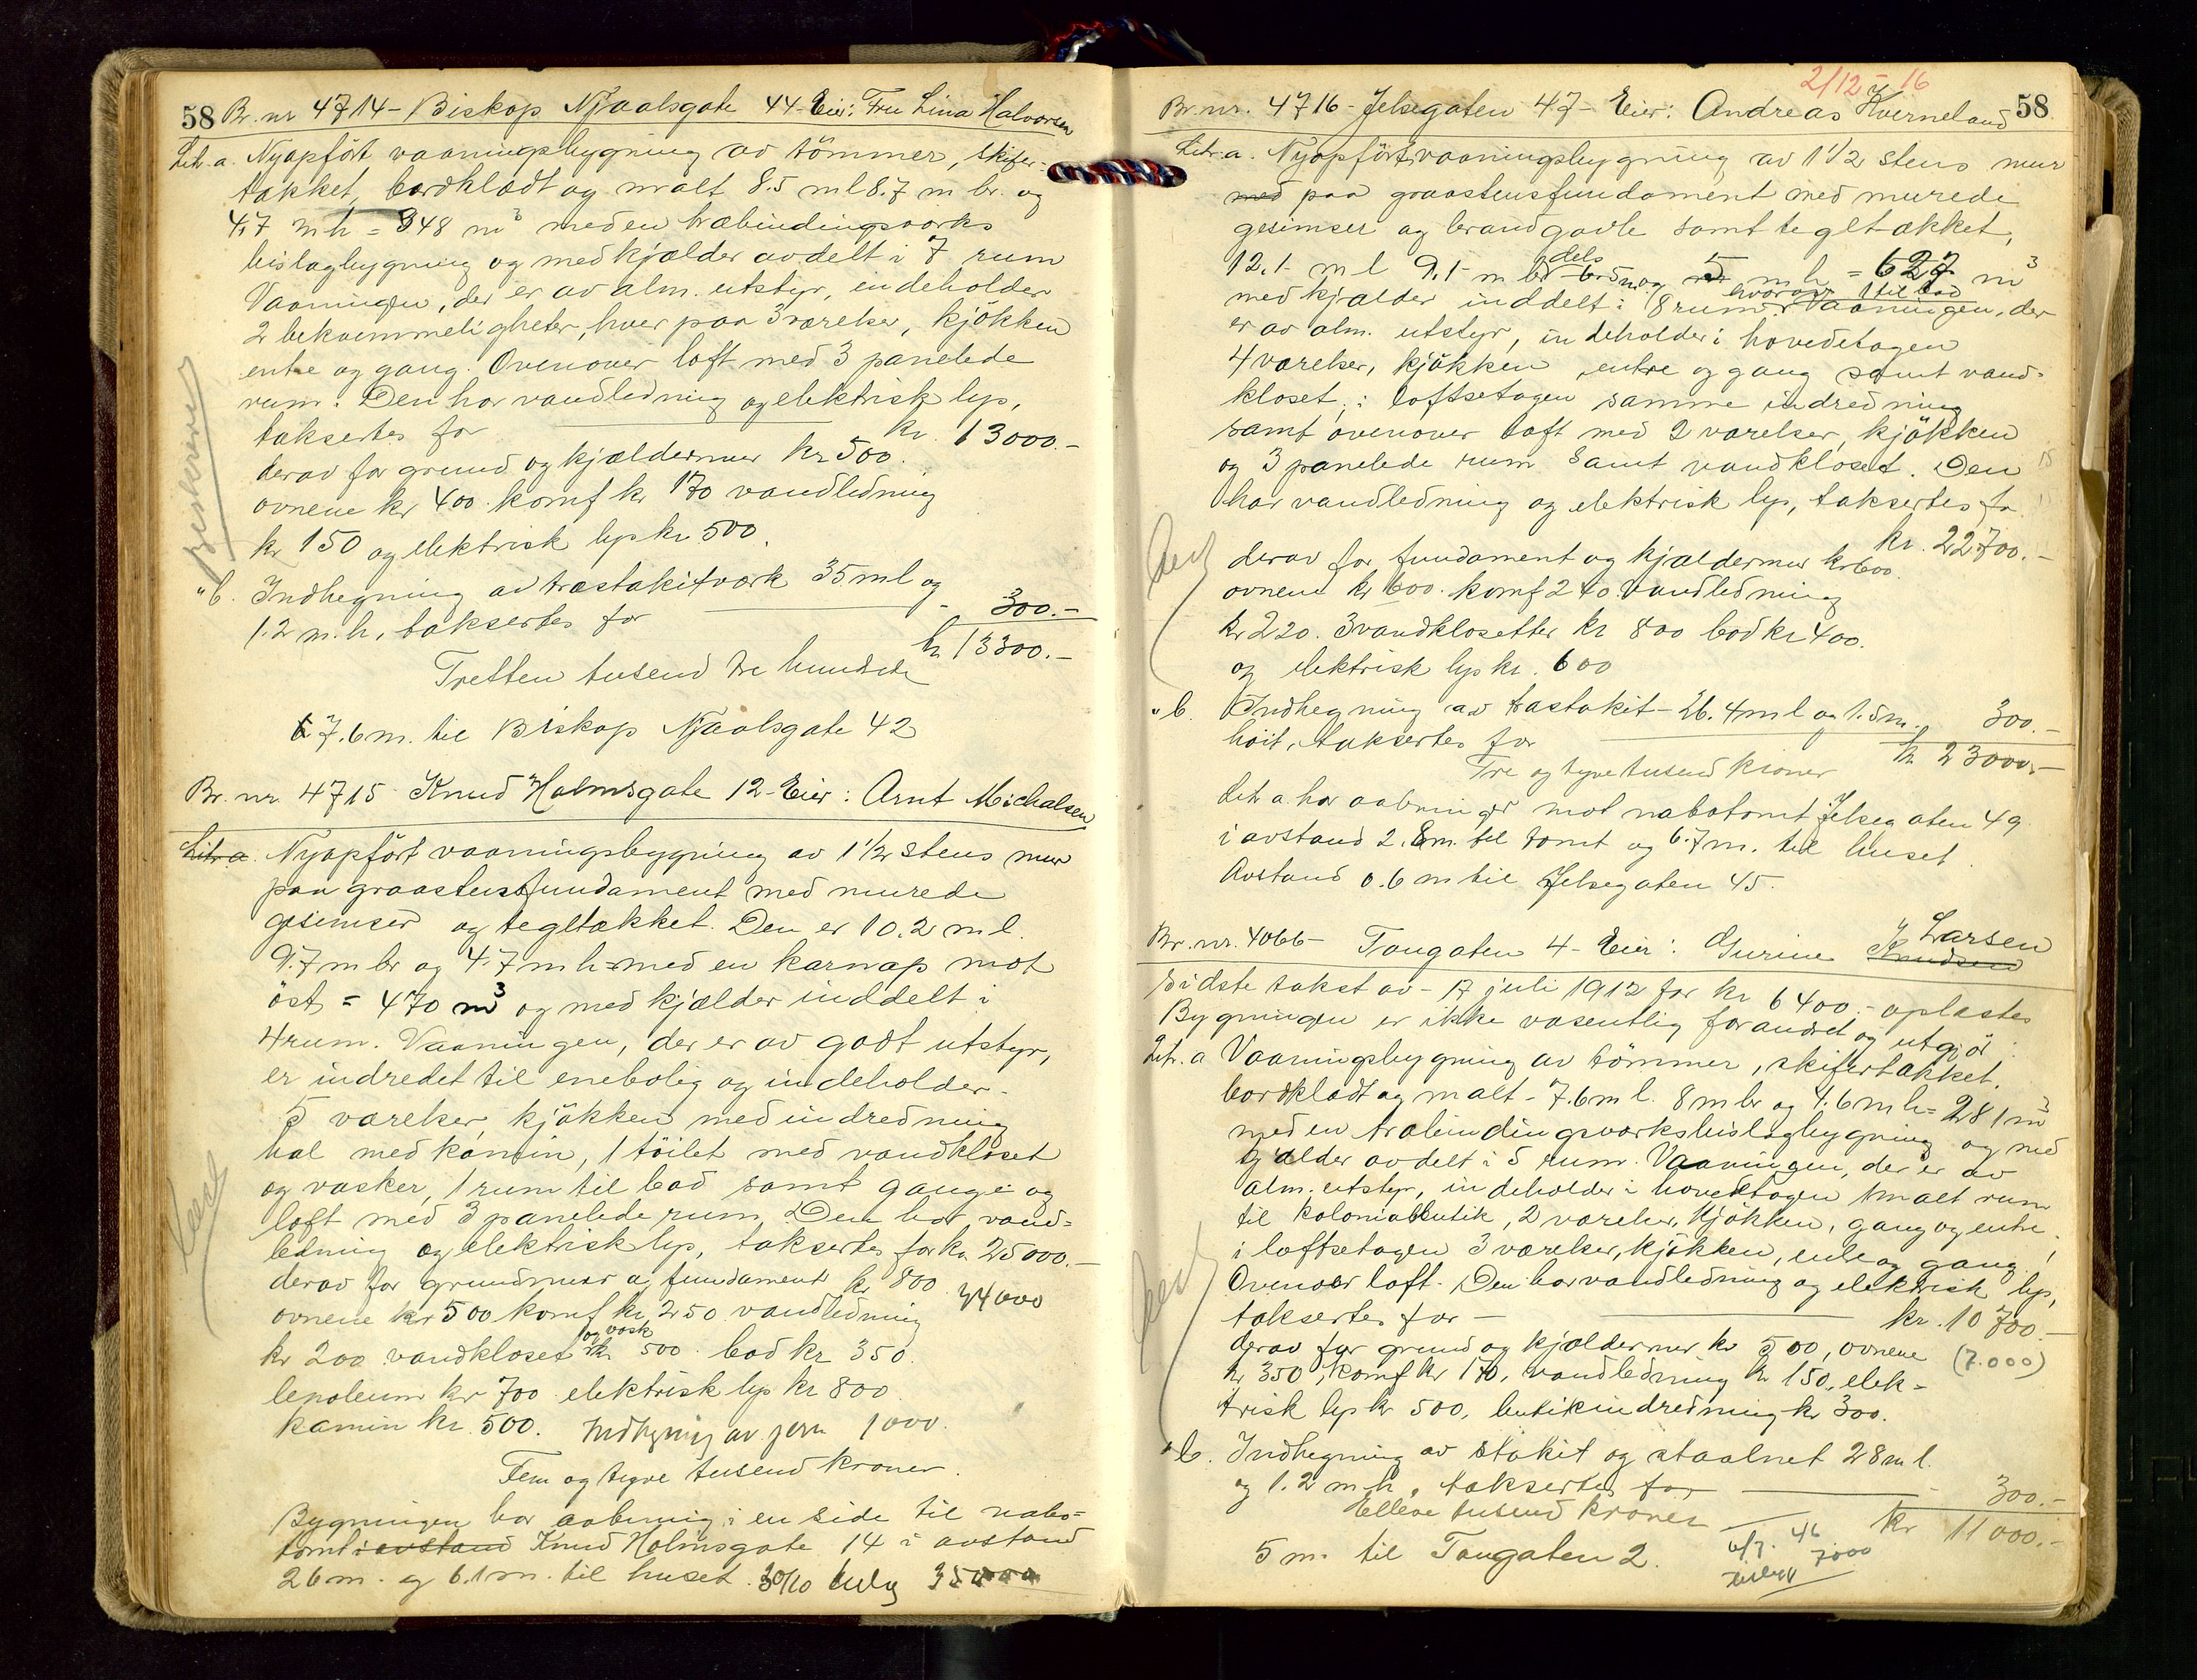 58 Br. nr 4714 - Biskop Njaalsgate 44 - Eier: Fru Lina Halvorsen
Litr. a. Nyopført vaaningsbygning av tømmer, skifer-
tækket, bordklædt og malt 8.5 m l 8.7 m br. og
4.7 m h = 348 m³ med en træbindingsverks
bislagbygning og med kjælder avdelt i 7 rum
Vaaningen, der er av alm. utstyr, indeholder
2 bekvemmeligheter, hver paa 3 værelser, kjøkken
entre og gang. Ovenover loft med 3 panelede
rum. Den har vandledning og elektrisk lys,
taksertes for kr. 13000.-
derav for grund og kjældermur kr 500.
ovnene kr 400. komf kr 170 vandledning
kr 150 og elektrisk lys kr 500.
Beskrevet
" b. Indhegning av træstakitværk 35 m l og
1.2 m. h., taksertes for - 300.-
kr 13300.-
Tretten tusend tre hundrede
7.6 m. til Biskop Njaalsgate 42
Br. nr 4715 Knud Holmsgate 12 - Eier: Arnt Michalsen
Litr a. Nyopført vaaningsbygning av 1 1/2 stens mur
paa graastensfundament med murede
gesimser og tegltækket. Den er 10.2 m l.
9.7 m br og 4.7 m h = med en karnap mot
øst, = 470 m³ og med kjælder inddelt i
4 rum. Vaaningen, der er av godt utstyr,
er indredet til enebolig og indeholder
5 værelser, kjøkken med indredning
hal med kamin, 1 tøilet med vandkloset
og vasker, 1 rum til bad samt gange og
loft med 3 panelede rum. Den har vand=
ledning og elektrisk lys, taksertes for kr. 25000.-
derav for grundmur og fundament kr 800 34000
ovnene kr 500 komf kr 250 vandledning
kr 200 vandkloset og vask kr 500. bad kr 350.
lenoleum kr 700 elektrisk lys kr 800.
kamin kr. 500. Indhegning av jern 1000.
Fem og tyve tusend kroner.
Bygningen har aabning i en side til nabo=
tomt i avstand Knud Holmsgate 14 i avstand
2 6 m. og 6.1 m. til huset. 30/10
2/12 - 16
Br. nr. 4716 - Jelsegaten 47 - Eier: Andreas Kverneland 58
Litr. a. Nyopført vaaningsbygning av 1 1/2 stens mur
med paa graastensfundament med murede
gesimser og brandgavle samt tegltækket,
12.1 m l 9.1 m br dels og 5 m h = 627 m³
med kjælder inddelt i 8 rum, hvorav 1 til bad Vaaningen, der
er av alm. utstyr, indeholder i hovedetagen
4 værelser, kjøkken, entre og gang samt vand=
kloset, i loftsetagen samme indredning
samt ovenover loft med 2 værelser, kjøkken
og 3 panelede rum samt vandkloset. Den
har vandledning og elektrisk lys, taksertes for
kr. 22700.-
derav for fundament og kjældermur kr 600.
ovnene kr 600. komf 240. vandledning
kr 220. 3 vandklosetter kr 800 bad kr 400.
og elektrisk lys kr. 600
" b. Indhegning av træstakit - 26.4 m l og 1.5 m. 300.-
høit, taksertes for
kr 23000.-
Tre og tyve tusend kroner
Litr a. har aabninger mot nabotomt Jelsegaten 49
i avstand 2.8 m. til tomt og 6.7 m. til huset.
Avstand 0.6 m til Jelsegaten 45.
Br. nr. 4066 - Tougaten 4 - Eier: Gurine Knudsen Larsen
Sidste takst av - 17 juli 1912 for kr 6400.- oplæstes
Bygningen er ikke væsentlig forandret og utgjør:
Litr. a Vaaningsbygning av tømmer, skifertækket,
bordklædt og malt - 7.6 m l. 8 m br og 4.6 m h = 281 m³
med en træbindingsverksbislagbygning og med
kjælder avdelt i 5 rum. Vaaningen, der er av
alm. utstyr, indeholder i hovedetagen 1 malt rum
til kolonialbutik, 2 værelser, kjøkken, gang og entre,
i loftsetagen 3 værelser, kjøkken, entre og gang.
Ovenover loft. Den har vandledning og elektrisk lys,
taksertes for - kr. 10700.-
derav for grund og kjældermur kr 500, ovnene (7.000)
kr 350, komf kr 170, vandledning kr 150, elek=
trisk lys kr 500, butikindredning kr 300.
" b. Indhegning av stakit og staalnet 28 m l.
og 1.2 m h, taksertes for - 300.-
Elleve tusend kroner kr 11000.-
5 m. til Tougaten 2. 6/7. 46 7000